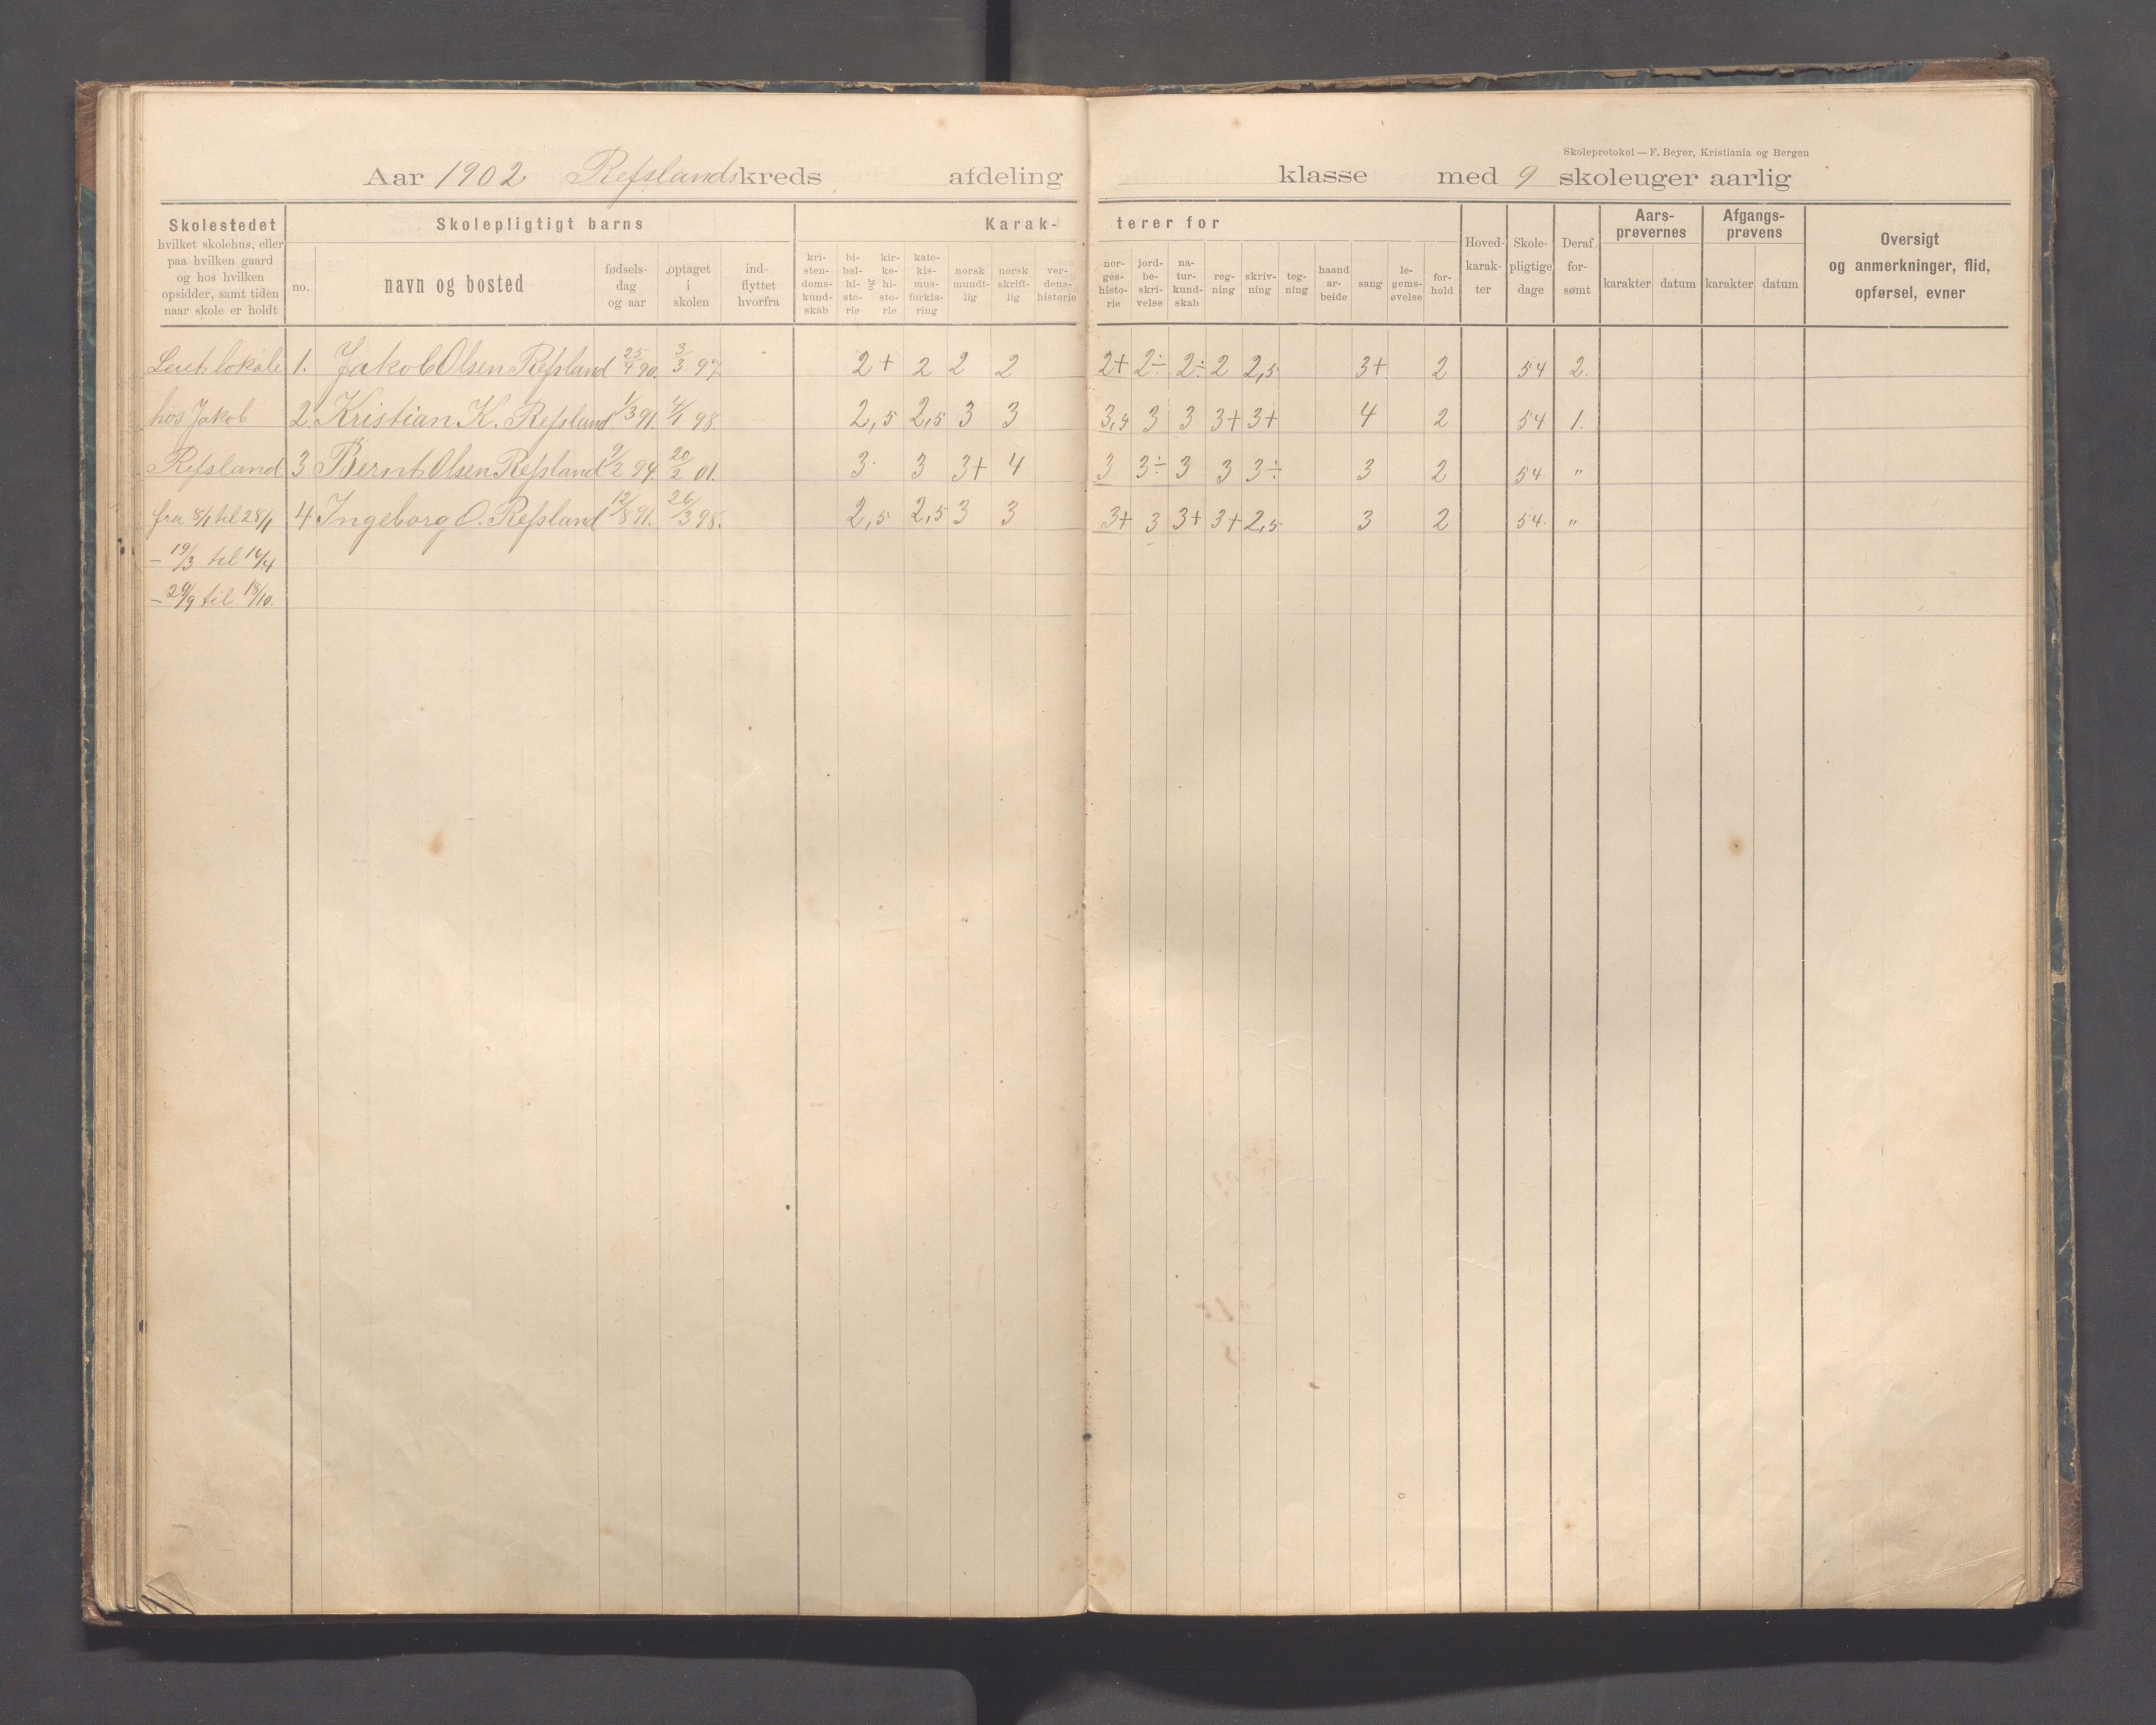 Skoleprotokol — F. Beyer, Kristiania og Bergen
Aar 1902 Refslands kreds afdeling klasse med 9 skoleuger aarlig
Skolestedet
hvilket skolehus, eller
paa hvilken gaard
og hos hvilken
opsidder, samt tiden
naar skole er holdt
Skolepligtigt barns
no.
navn og bosted
fødsels-
dag
og aar
optaget
i
skolen
ind-
flyttet
hvorfra
Karak-
kri-
sten-
doms-
kund-
skab
bi-
bel-
hi-
sto-
rie
og
kir-
ke-
hi-
sto-
rie
kate-
kis-
mus-
forkla-
ring
norsk
mundt-
lig
norsk
skrift-
lig
ver-
dens-
historie
terer for
nor-
ges-
histo-
rie
jord-
be-
skri-
velse
na-
tur-
kund-
skab
reg-
ning
skriv-
ning
teg-
ning
haand
ar-
beide
sang
le-
gems-
øvelse
for-
hold
Hoved-
karak-
ter
Skole-
pligtige
dage
Deraf
for-
sømt
Aars-
prøvernes
karakter datum
Afgangs-
prøvens
karakter datum
Oversigt
og anmerkninger, flid,
opførsel, evner
Leiet lokale 1. Jakob Olsen Refsland 25/4 90. 3/3 97 2+ 2 2 2 2+ 2÷ 2÷ 2 2,5 3+ 2 54 2.
hos Jakob 2. Kristian K. Refsland 1/3 91. 4/1 98. 2,5 2,5 3 3 3,5 3 3 3+ 3+ 4 2 54 1.
Refsland 3 Bernt Olsen Refsland 9/2 94. 20/2 01. 3. 3 3+ 4 3 3÷ 3 3 3÷ 3 2 54. "
fra 8/1 til 28/1 4 Ingeborg O. Refsland 12/8 91. 26/3 98. 2,5 2,5 3 3 3+ 3 3+ 3+ 2,5 3 2 54. "
– 19/3 til 14/4
– 29/9 til 18/10.